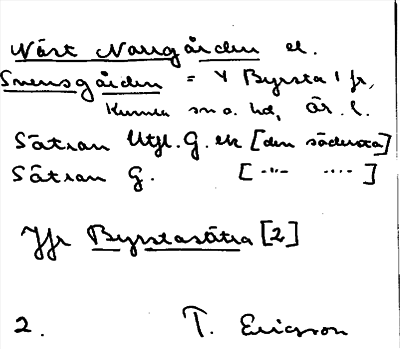 Näst Norrgården el.
Svensgården = Y Byrsta 1 fr,
Kumla sn o. hd, Ör. l.
Sätran Utjl. G. ek [den södersta]
Sätran G. [ -"- -"- ]
Jfr Byrstasätra [2]
2. T. Ericsson